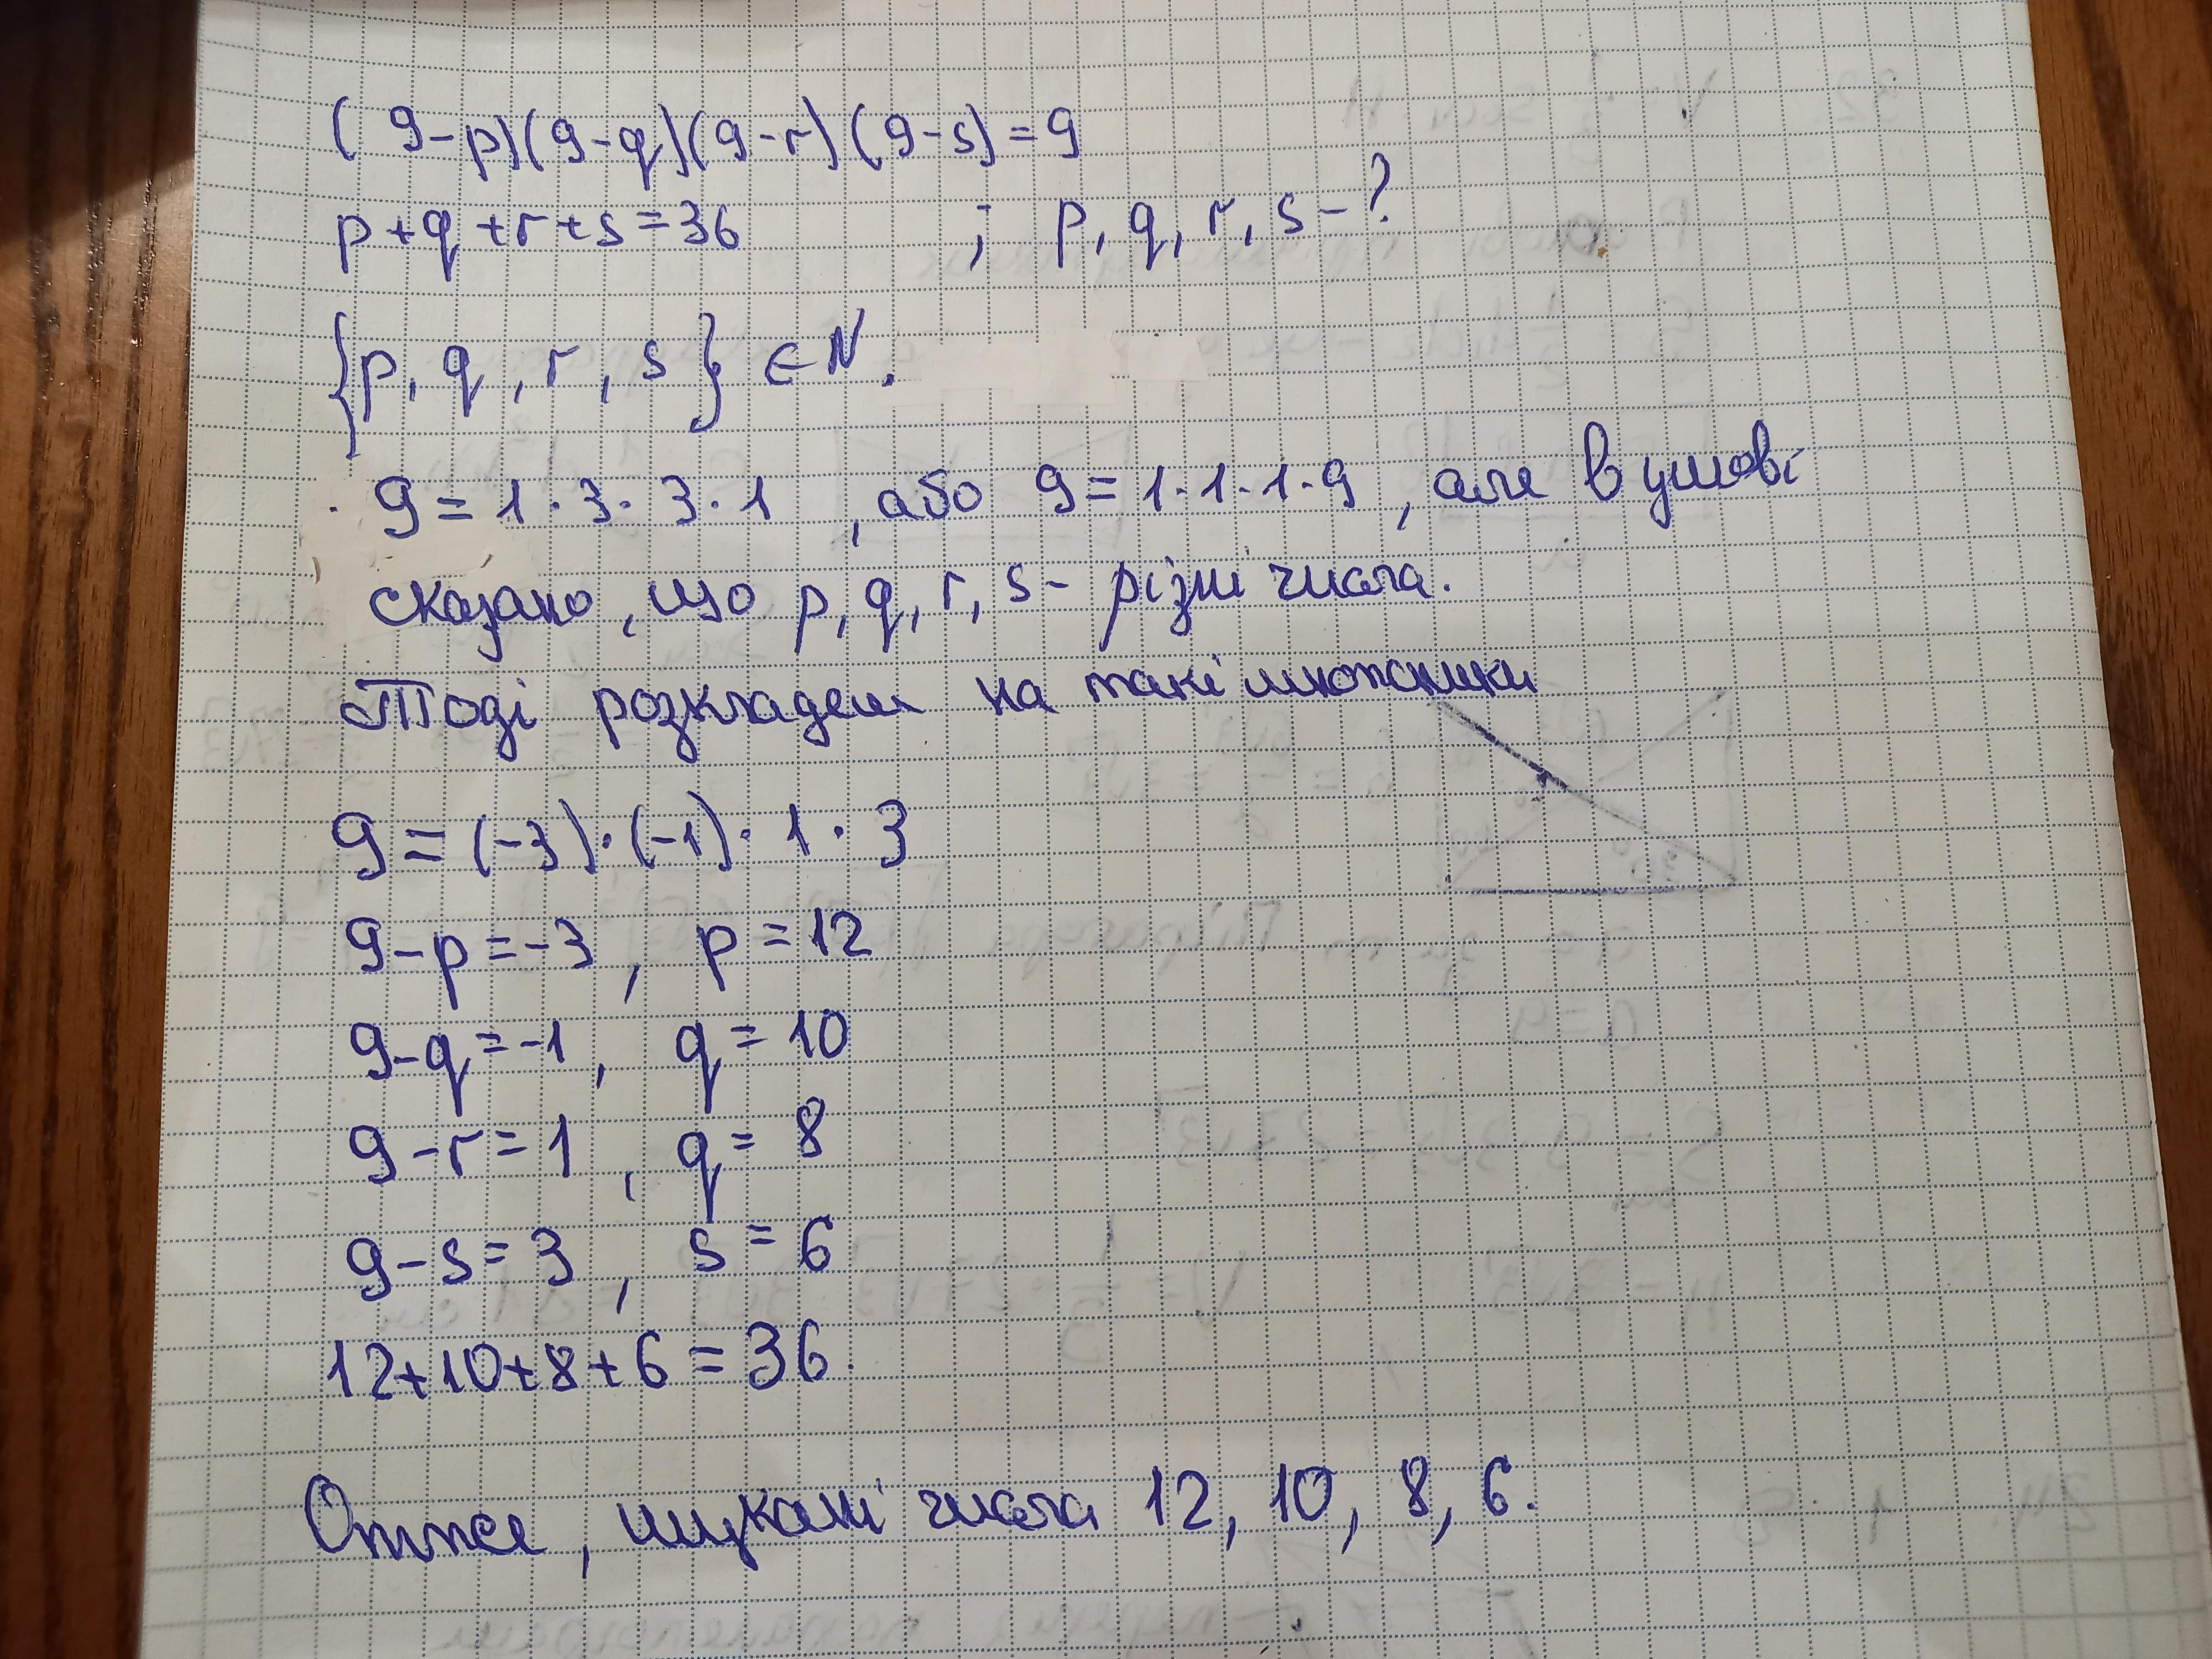 (9-p)(9-q)(9-r)(9-s)=9
p+q+r+s=36 ; p, q, r, s-?
{p, q, r, s} ∈ N.
9=1·3·3·1, або 9=1·1·1·9, але в умові
сказано, що p, q, r, s- різні числа.
Тоді розкладем на такі множники
9=(-3)·(-1)·1·3
9-p=-3, p=12
9-q=-1, q=10
9-r=1, q=8
9-s=3, s=6
12+10+8+6=36.
Отже, шукані числа 12, 10, 8, 6.